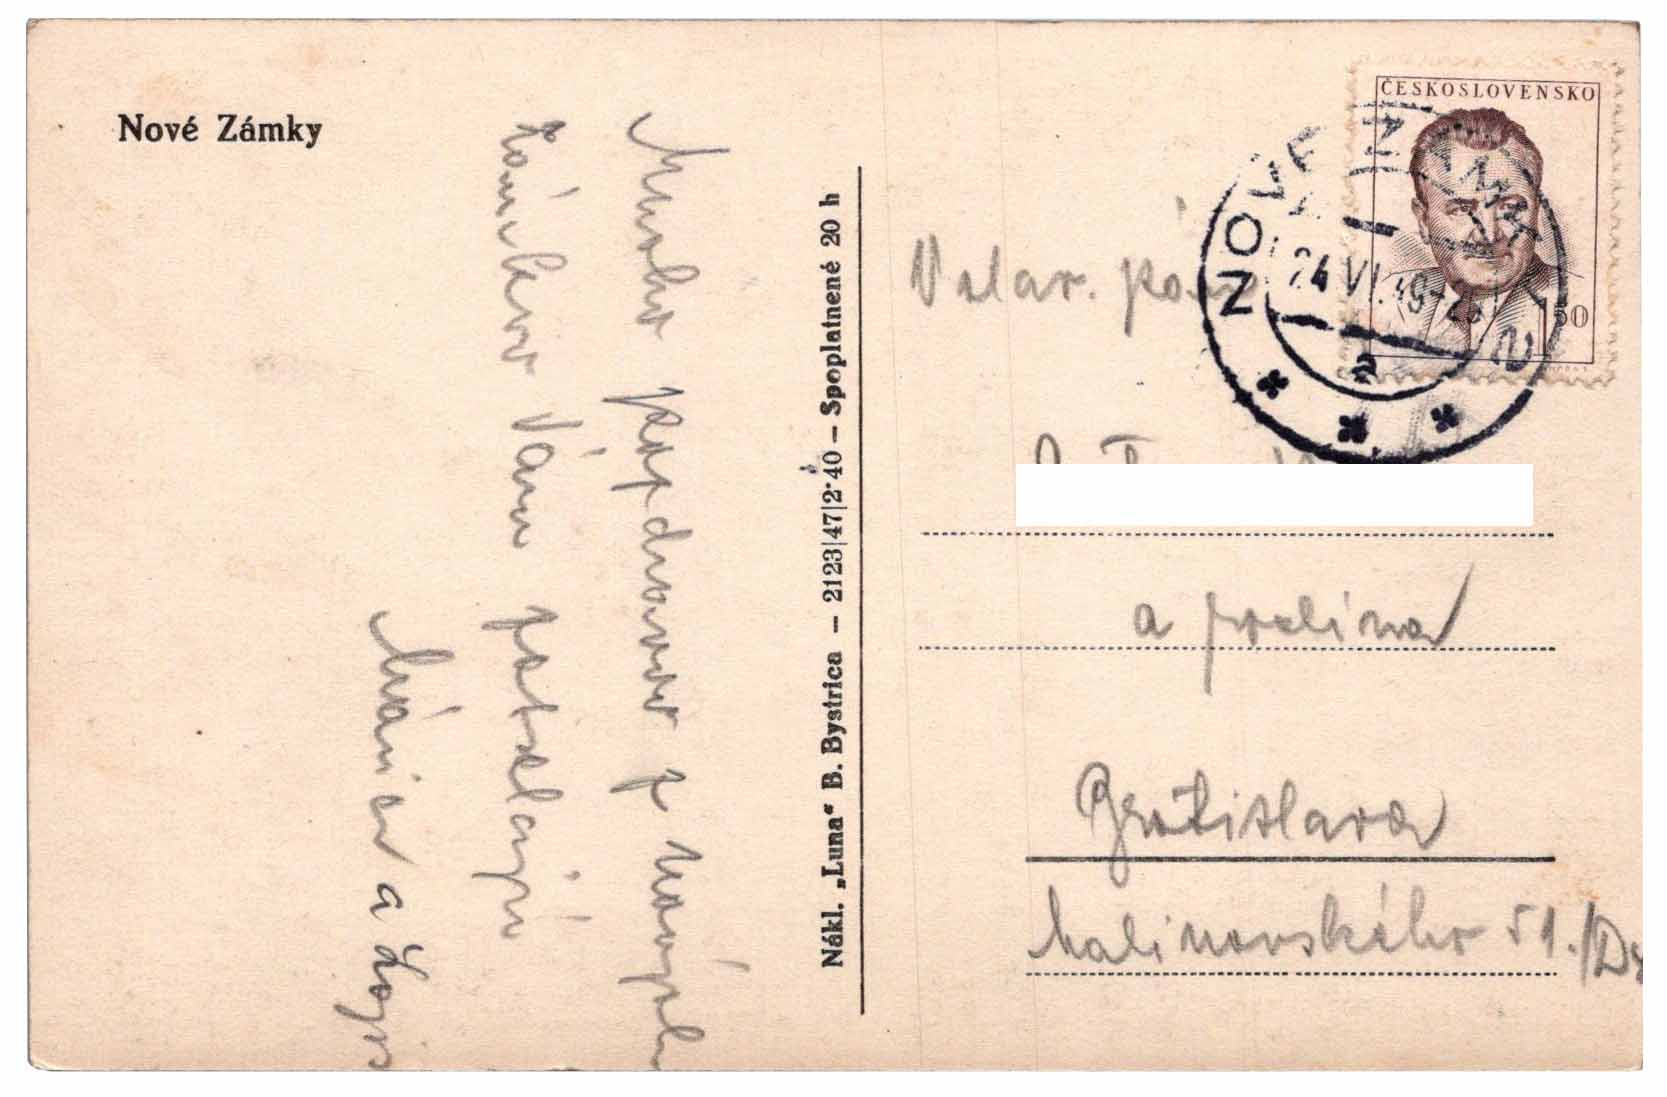 Nové Zámky
Mnoho pozdravov z Nových
Zámkov Vám posielajú
Mária a Lojzi
Nákl. „Luna“ B. Bystrica – 2123|47|2·40 – Spoplatnené 20 h
ČESKOSLOVENSKO
1.50
NOVÉ ZÁMKY
24 VI. 49
a
Vslav. pán
a rodina
Bratislava
Malinovského 51./D